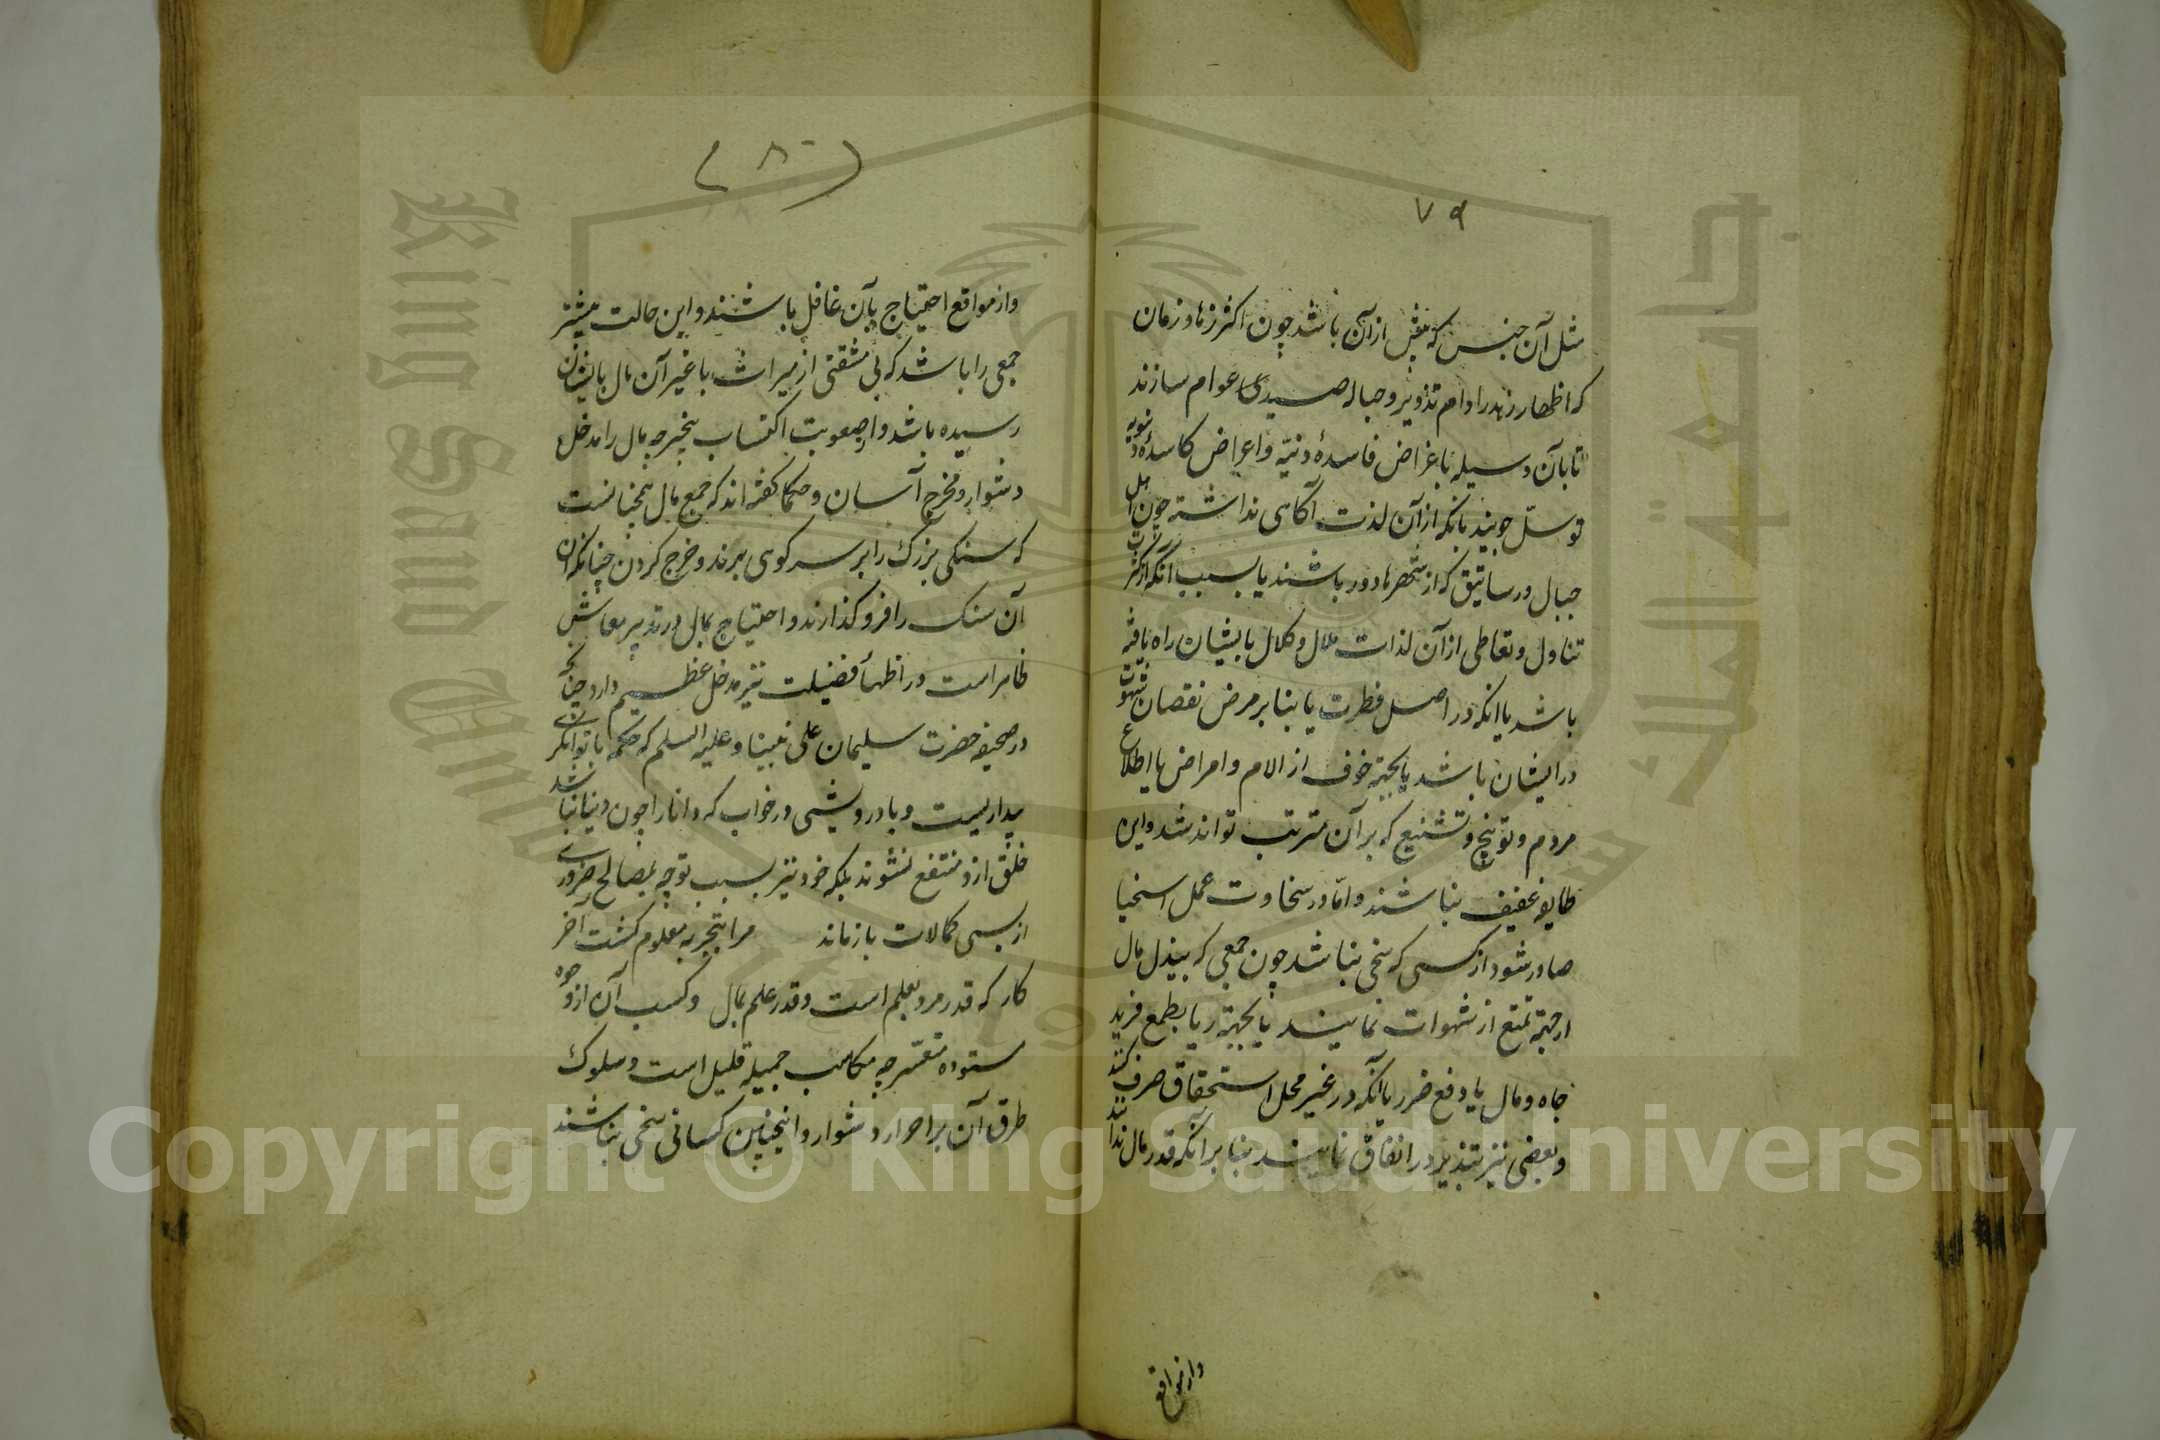 ۷۹
مثل آن جنس که بیش از آن باشد چون اکثر زهاد زمان
که اظهار زهد را دام تذویر و حباله صیدی عوام سازند
تا بآن وسیله باغراض فاسدهٔ دنیّه و اعراض کاسدهٔ دنیویه
توسّل جویند یا آنکه از آن لذت آگاهی نداشته چون اهل
جبال و رساتیق که از شهرها دور باشند یا بسبب آنکه از کثرت
تناول و تعاطی از آن لذات ملال و کلال بایشان راه یافته
باشد یا آنکه در اصل فطرت یا بنا بر مرض نقصان شهوت
در ایشان باشد یا بجهة خوف از الام و امراض یا اطلاع
مردم و توبیخ و تشنیع که بر آن مترتب تواند شد و این
طایفه عفیف نباشند و امّا در سخاوت عمل اسخیا
صادر شود از کسی که سخی نباشد چون جمعی که ببذل مال
از جهة تمتع از شهوات نمایند یا بجهة ریا بطمع فرید
جاه و مال یا دفع ضرر یا آنکه در غیر محل استحقاق صرف کنند
و بعضی نیز تبذیر در انفاق نمایند بنا بر آنکه قدر مال ندانند
و از مواقع
(۸۰)
و از مواقع احتیاج بآن غافل باشند و این حالت بیشتر
جمعی را باشد که بی مشقتی از میراث یا غیر آن مال بایشان
رسیده باشد و از صعوبت اکتساب بیخبر چه مال را مدخل
دشوار و مخرج آسان و حکما گفته اند که جمع مال همچنانست
که سنکی بزرك را بر سر کوهی برند و خرج کردن چنانکه
آن سنک را فرو کذارند و احتیاج بمال در تدبیر معاش
ظاهر است و در اظهار فضیلت نیز مدخل عظیم دارد چنانکه
در صحیفه حضرت سلیمان علی نبینا و علیه السلم که حکمة با توانگری
بیدار است و با درویشی در خواب که دانا را چون دنیا نباشد
خلق ازو منتفع نشوند بلکه خود نیز بسبب توجه بمصالح ضروری
از بسی کمالات بازماند مرا بتجربه معلوم کشت آخر
کار که قدر مرد بعلم است و قدر علم بمال و کسب آن از وجوه
ستوده متعسّر چه مکاسب جمیله قلیل است و سلوك
طرق آن بر احرار دشوار و اینچنین کسانی سخی نباشند
King Saud University
جامعة الملك سعود
1957
Copyright © King Saud University